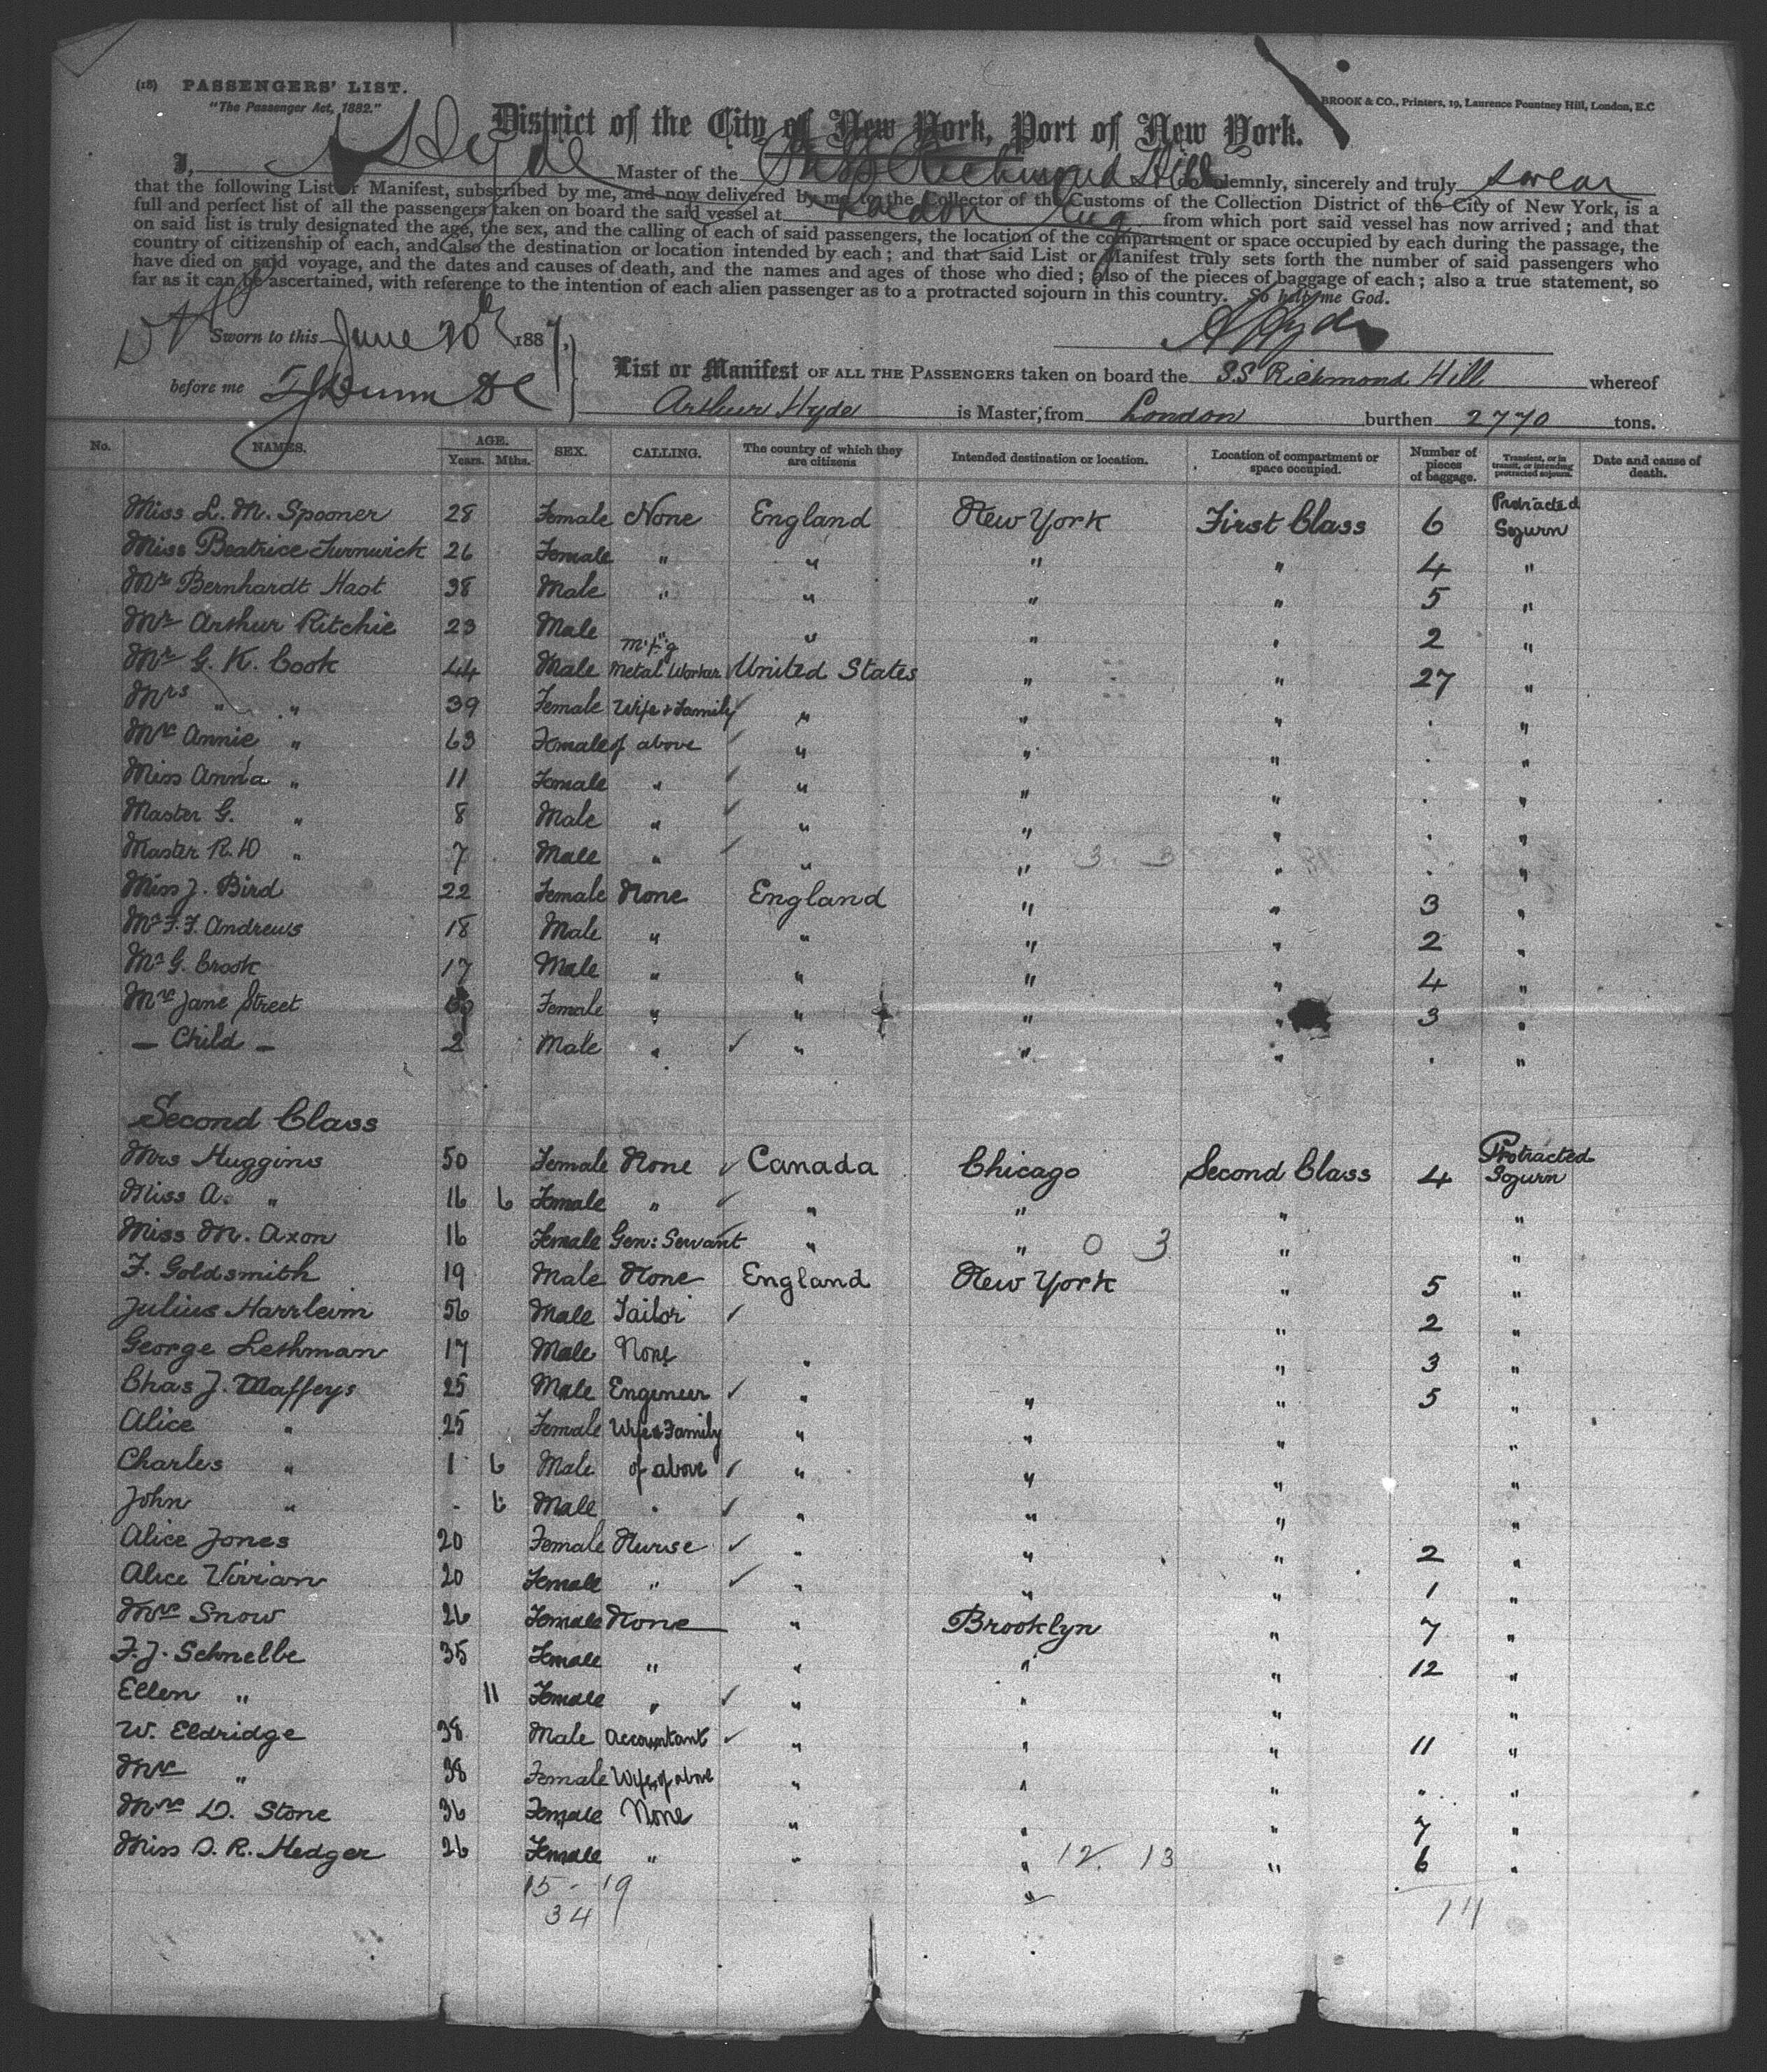 (18) PASSENGERS' LIST.
"The Passenger Act, 1882."
BROOK & CO., Printers, 19, Laurence Pountney Hill, London, E.C
District of the City of New York, Port of New York.
I, A Hyde Master of the SS Richmond Hill do solemnly, sincerely and truly swear
that the following List or Manifest, subscribed by me, and now delivered by me to the Collector of the Customs of the Collection District of the City of New York, is a
full and perfect list of all the passengers taken on board the said vessel at London Eng from which port said vessel has now arrived; and that
on said list is truly designated the age, the sex, and the calling of each of said passengers, the location of the compartment or space occupied by each during the passage, the
country of citizenship of each, and also the destination or location intended by each; and that said List or Manifest truly sets forth the number of said passengers who
have died on said voyage, and the dates and causes of death, and the names and ages of those who died; also of the pieces of baggage of each; also a true statement, so
far as it can be ascertained, with reference to the intention of each alien passenger as to a protracted sojourn in this country. So help me God.
A Hyde
Sworn to this June 20th 1887,
before me
List or Manifest OF ALL THE PASSENGERS taken on board the S.S Richmond Hill whereof
Arthur Hyde is Master, from London burthen 2770 tons.
No. NAMES. AGE. Years. Mths. SEX. CALLING. The country of which they are citizens Intended destination or location. Location of compartment or space occupied. Number of pieces of baggage. Transient, or in transit, or intending protracted sojourn. Date and cause of death.
Miss L. M. Spooner 28 Female None England New York First Class 6 Protracted Sojurn
Miss Beatrice Turnwick 26 Female " " " " 4 "
Mr Bernhardt Hast 38 Male " " " " 5 "
Mr Arthur Ritchie 23 Male " " " " 2 "
Mr G. K. Cook 44 Male M.f.g Metal Worker United States " " 27 "
Mrs " " 39 Female Wife & Family " " " . "
Mrs Annie " 63 Female of above " " " . "
Miss Anna " 11 Female " " " " . "
Master G. " 8 Male " " " " . "
Master R. D " 7 Male " " " 3. 3 " . "
Miss J. Bird 22 Female None England " " 3 "
Mr F. F. Andrews 18 Male " " " " 2 "
Mr G. Crook 17 Male " " " " 4 "
Mrs Jane Street Female " " " " 3 "
— Child — 2 Male " " " " . "
Second Class
Mrs Huggins 50 Female None Canada Chicago Second Class 4 Protracted Sojurn
Miss A. " 16 6 Female " " " " "
Miss M. Axon 16 Female Gen: Servant " " 0 3 " "
F. Goldsmith 19 Male None England New York " 5 "
Julius Harrleim 56 Male Tailor " 2 "
George Leshman 17 Male None " " 3 "
Chas J. Maffeys 25 Male Engineer " " " 5 "
Alice " 25 Female Wife & Family " " " "
Charles " 1 6 Male of above " " " "
John " - 6 Male " " " " "
Alice Jones 20 Female Nurse " " " 2 "
Alice Vivian 20 Female " " " " 1 "
Mrs Snow 26 Female None " Brooklyn " 7 "
F. J. Schnelbe 35 Female " " " " 12 "
Ellen " 11 Female " " " " "
W. Eldridge 38 Male Accountant " " " 11 "
Mrs " 38 Female Wife of above " " " " "
Mrs D. Stone 36 Female None " " " 7 "
Miss D. R. Hedger 26 Female " " " 12. 13 " 6 "
15 - 19
34